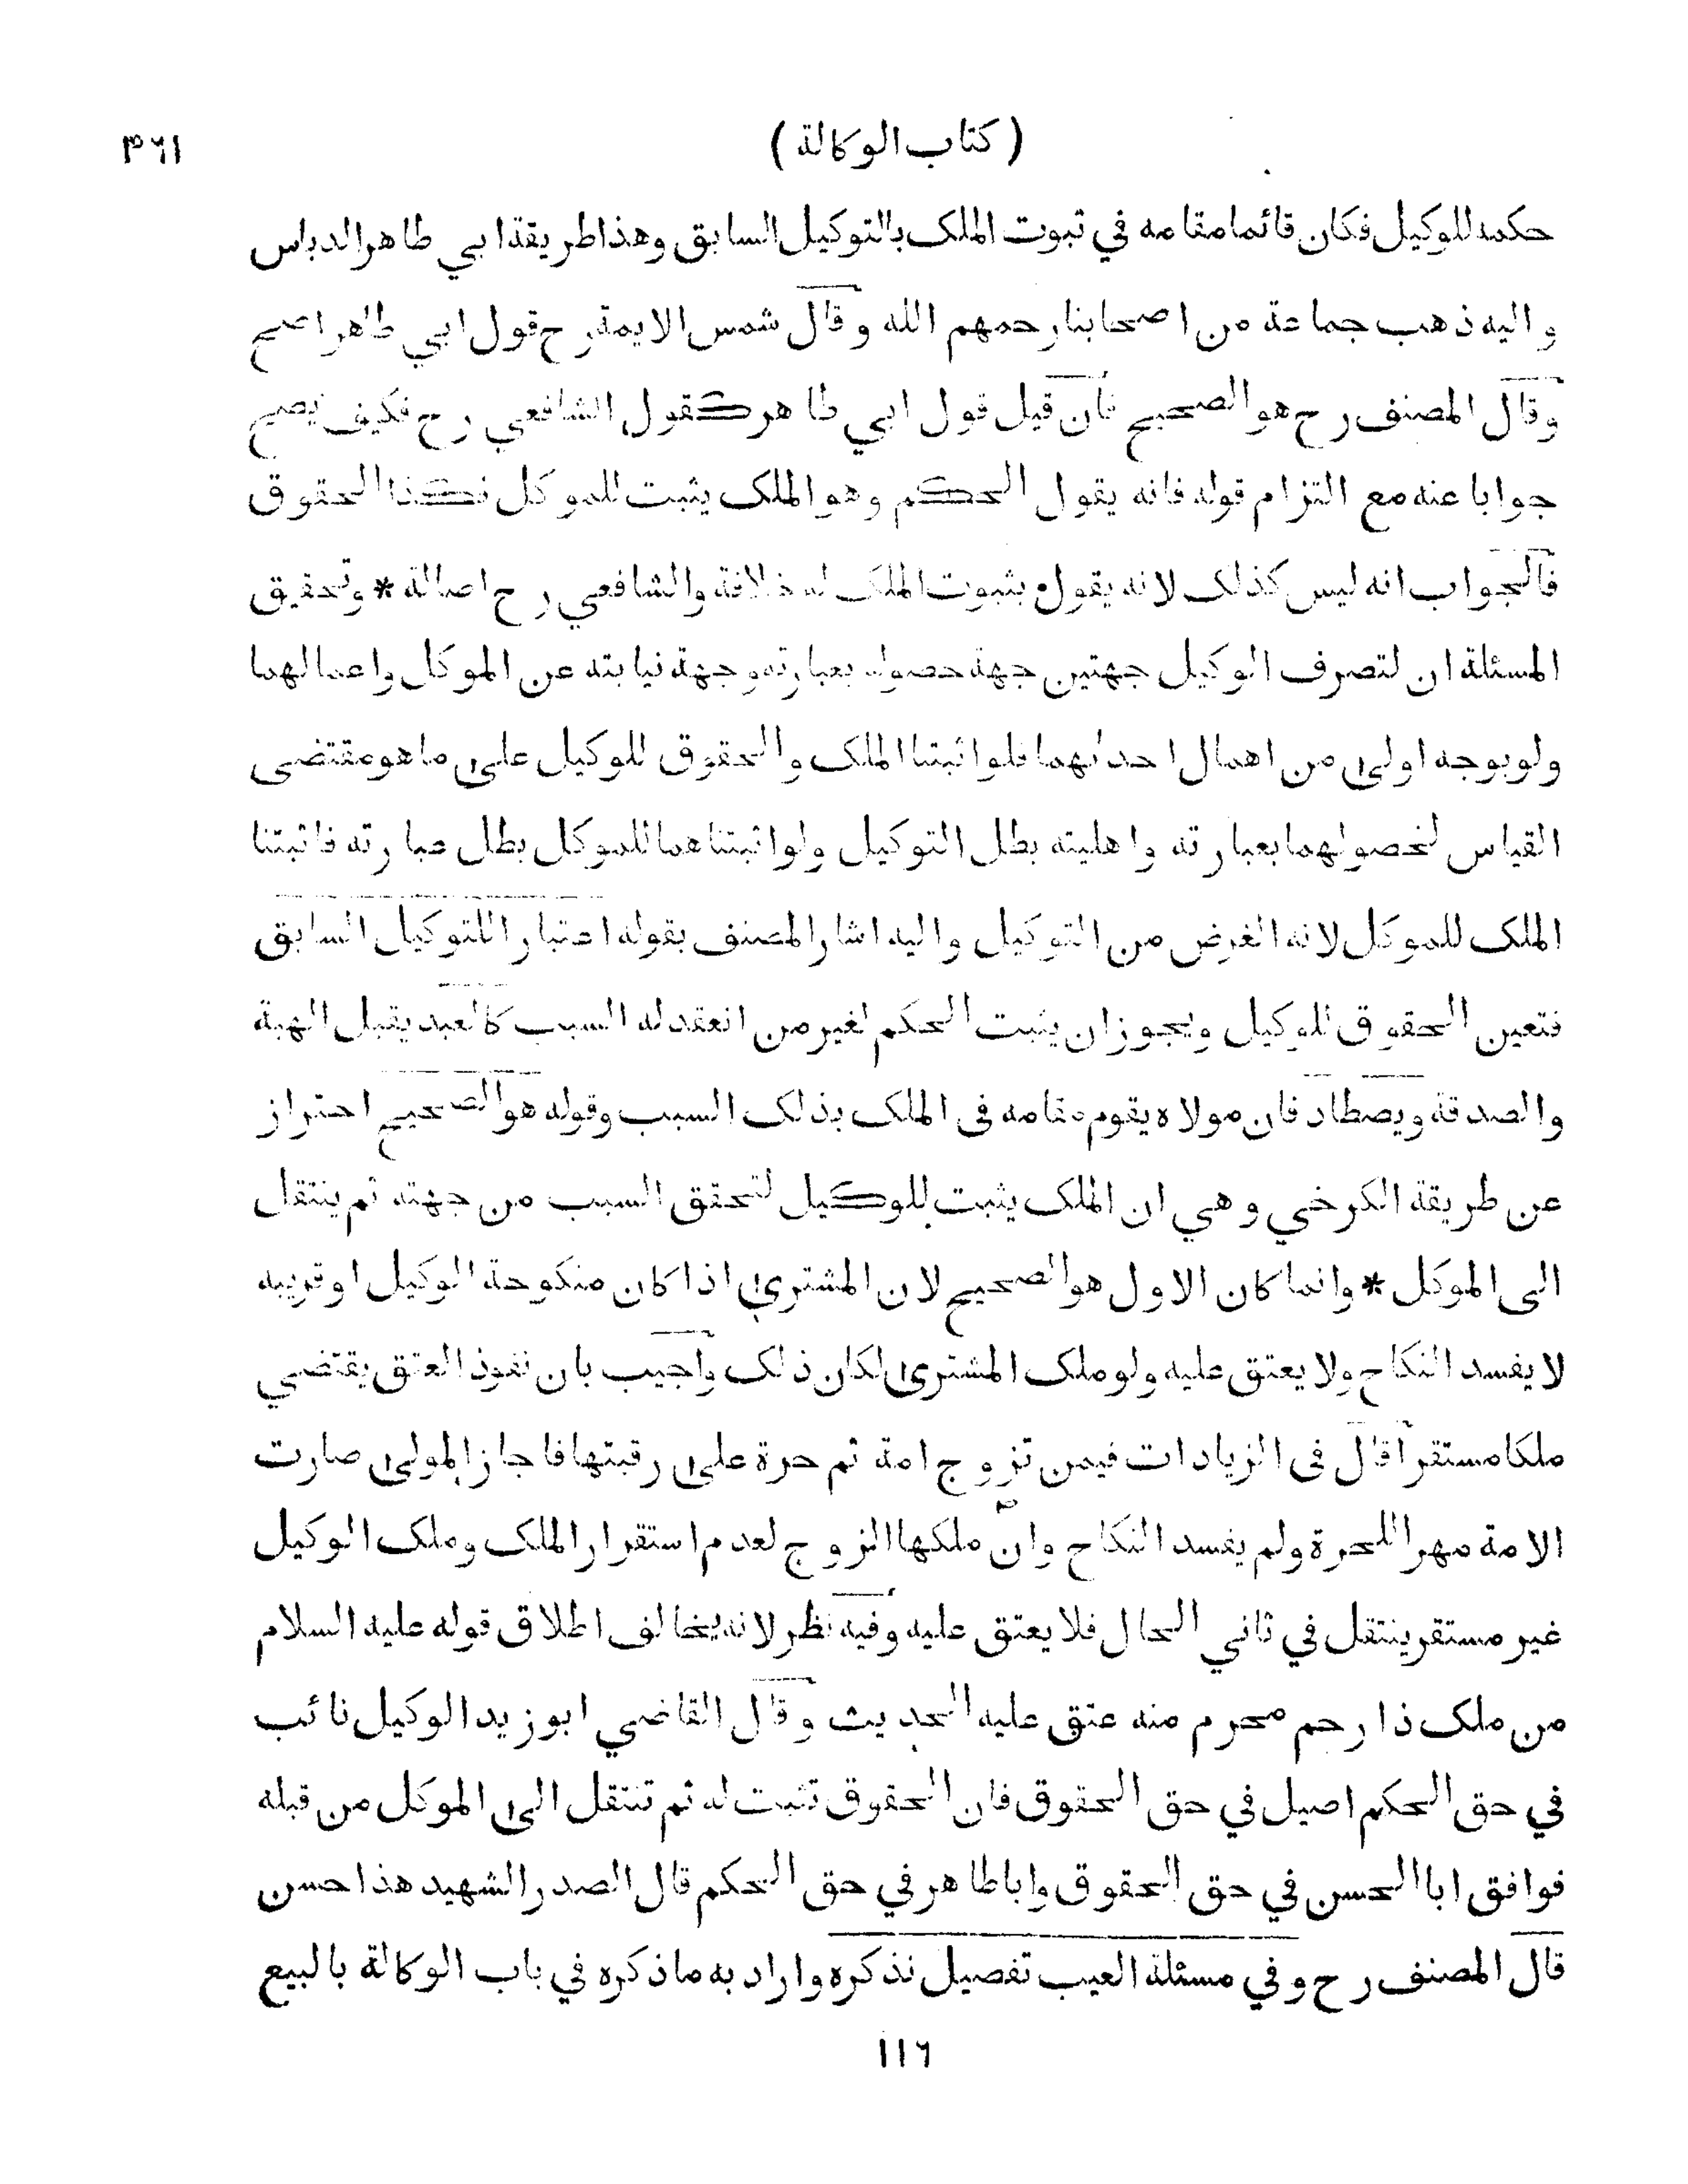 ( كتاب الوكالة )
٣٦١
حكمه للوكيل فكان قائما مقامه في ثبوت الملك بالتوكيل السابق وهذا طريقة ابي طاهر الدباس
واليه ذهب جماعة من اصحابنا رحمهم الله وقال شمس الايمة رح قول ابي طاهر اصح
وقال المصنف رح هو الصحيح فان قيل قول ابي طاهر كقول الشافعي رح فكيف يصح
جوابا عنه مع التزام قوله فانه يقول الحكم وهو الملك يثبت للموكل فكذا الحقوق
فالجواب انه ليس كذلك لانه يقول بثبوت الملك له خلافة والشافعي رح اصالة * وتحقيق
المسئلة ان لتصرف الوكيل جهتين جهة حصوله بعبارته وجهة نيابته عن الموكل واعمالهما
ولو بوجه اولى من اهمال احدٰهما فلو اثبتنا الملك والحقوق للوكيل على ما هو مقتضى
القياس لحصولهما بعبارته واهليته بطل التوكيل ولو اثبتناهما للموكل بطل عبارته فاثبتنا
الملك للموكل لانه الغرض من التوكيل واليه اشار المصنف بقوله اعتبارا للتوكيل السابق
فتعين الحقوق للوكيل ويجوز ان يثبت الحكم لغير من انعقد له السبب كالعبد يقبل الهبة
والصدقة ويصطاد فان مولاه يقوم مقامه فى الملك بذلك السبب وقوله هو الصحيح احتراز
عن طريقة الكرخي وهي ان الملك يثبت للوكيل لتحقق السبب من جهته ثم ينتقل
الى الموكل * وانما كان الاول هو الصحيح لان المشترى اذا كان منكوحة الوكيل او قريبه
لا يفسد النكاح ولا يعتق عليه ولو ملك المشترى لكان ذلك واجيب بان نفوذ العتق يقتضي
ملكا مستقرا قال فى الزيادات فيمن تزوج امة ثم حرة على رقبتها فاجاز المولى صارت
الامة مهرا للحرة ولم يفسد النكاح وان ملكها الزوج لعدم استقرار الملك وملك الوكيل
غير مستقر ينتقل في ثاني الحال فلا يعتق عليه وفيه نظر لانه يخالف اطلاق قوله عليه السلام
من ملك ذا رحم محرم منه عتق عليه الحديث وقال القاضي ابو زيد الوكيل نائب
في حق الحكم اصيل في حق الحقوق فان الحقوق تثبت له ثم تنتقل الى الموكل من قبله
فوافق ابا الحسن في حق الحقوق وابا طاهر في حق الحكم قال الصدر الشهيد هذا حسن
قال المصنف رح وفي مسئلة العيب تفصيل نذكره واراد به ما ذكره في باب الوكالة بالبيع
١١٦